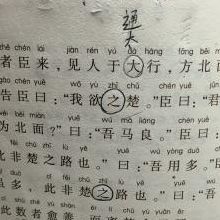 通
太
chén lái jiàn rén yú háng fāng běi
者臣来，见人于大行，方北面
gào chén yuē wǒ yù zhī chǔ chén yuē
告臣曰：“我欲之楚。”臣曰：“君
wèi běi miàn yuē wú mǎ liáng chén yuē
为北面？”曰：“吾马良。”臣曰：
fēi chǔ zhī lù yě yuē wú yòng duō
非楚之路也。”曰：“吾用多。”
duō cǐ fēi chǔ zhī lù yě yuē wú
多，此非楚之路也。”曰：“吾
shù zhě yù shàn
此数者愈善